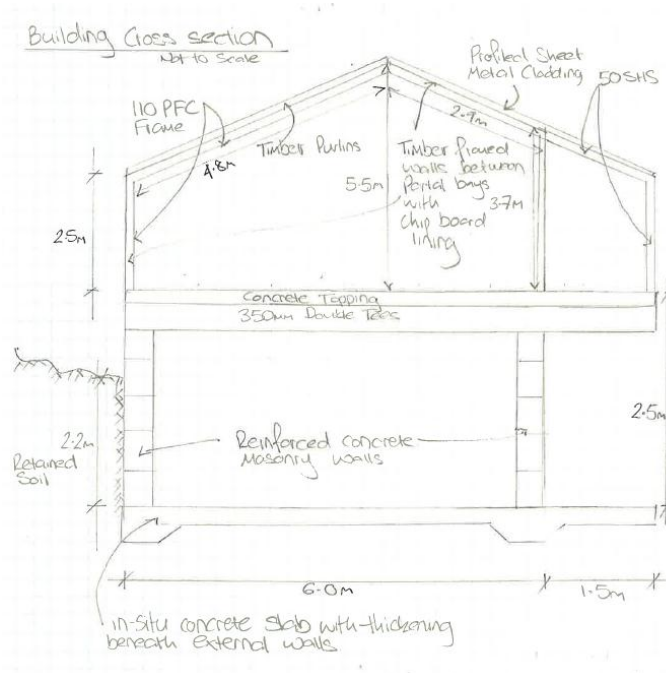 Building Cross section
Not to Scale
Profiled Sheet
Metal Cladding
50 SHS
110 PFC
Frame
2.9m
4.8m
Timber Purlins
Timber framed
walls between
Portal bays
with
chip board
lining
5.5m
3.7m
2.5m
Concrete Topping
350mm Double Tees
2.5m
2.2m
Retained
Soil
Reinforced concrete
masonry walls
6.0m
1.5m
in-situ concrete slab with thickening
beneath external walls